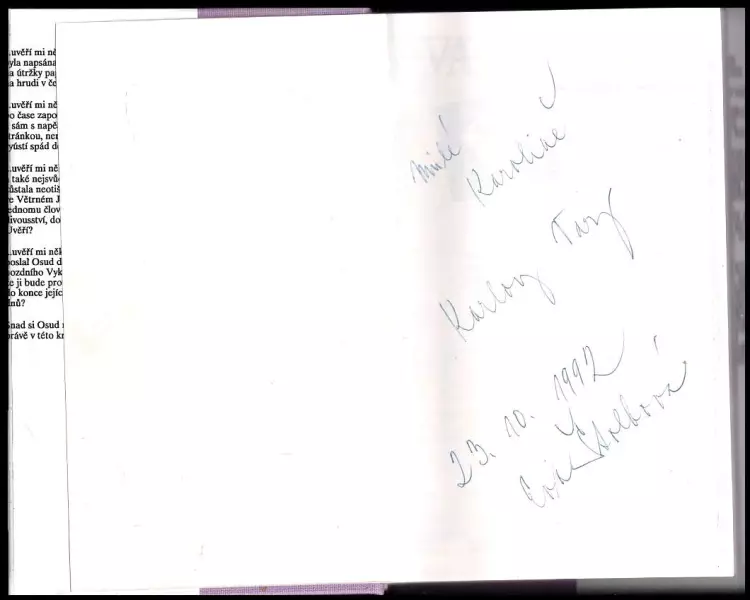 ..uvěří mi ně
yla napsána
a útržky pa
a hrudi v če
..uvěří mi ně
o čase zapo
sám s napě
tránkou, ner
yústí spád d
..uvěří mi ně
také nejsvů
ůstala neotiš
e Větrném J
ednomu člov
livousství, do
Uvěří?
..uvěří mi něk
oslal Osud d
ozdního Vyk
e ji bude pro
o konce jejíc
nů?
Snad si Osud
rávě v této kr
milé
Karolině
Karlovy Vary
23. 10. 1992
Eva Štolbová